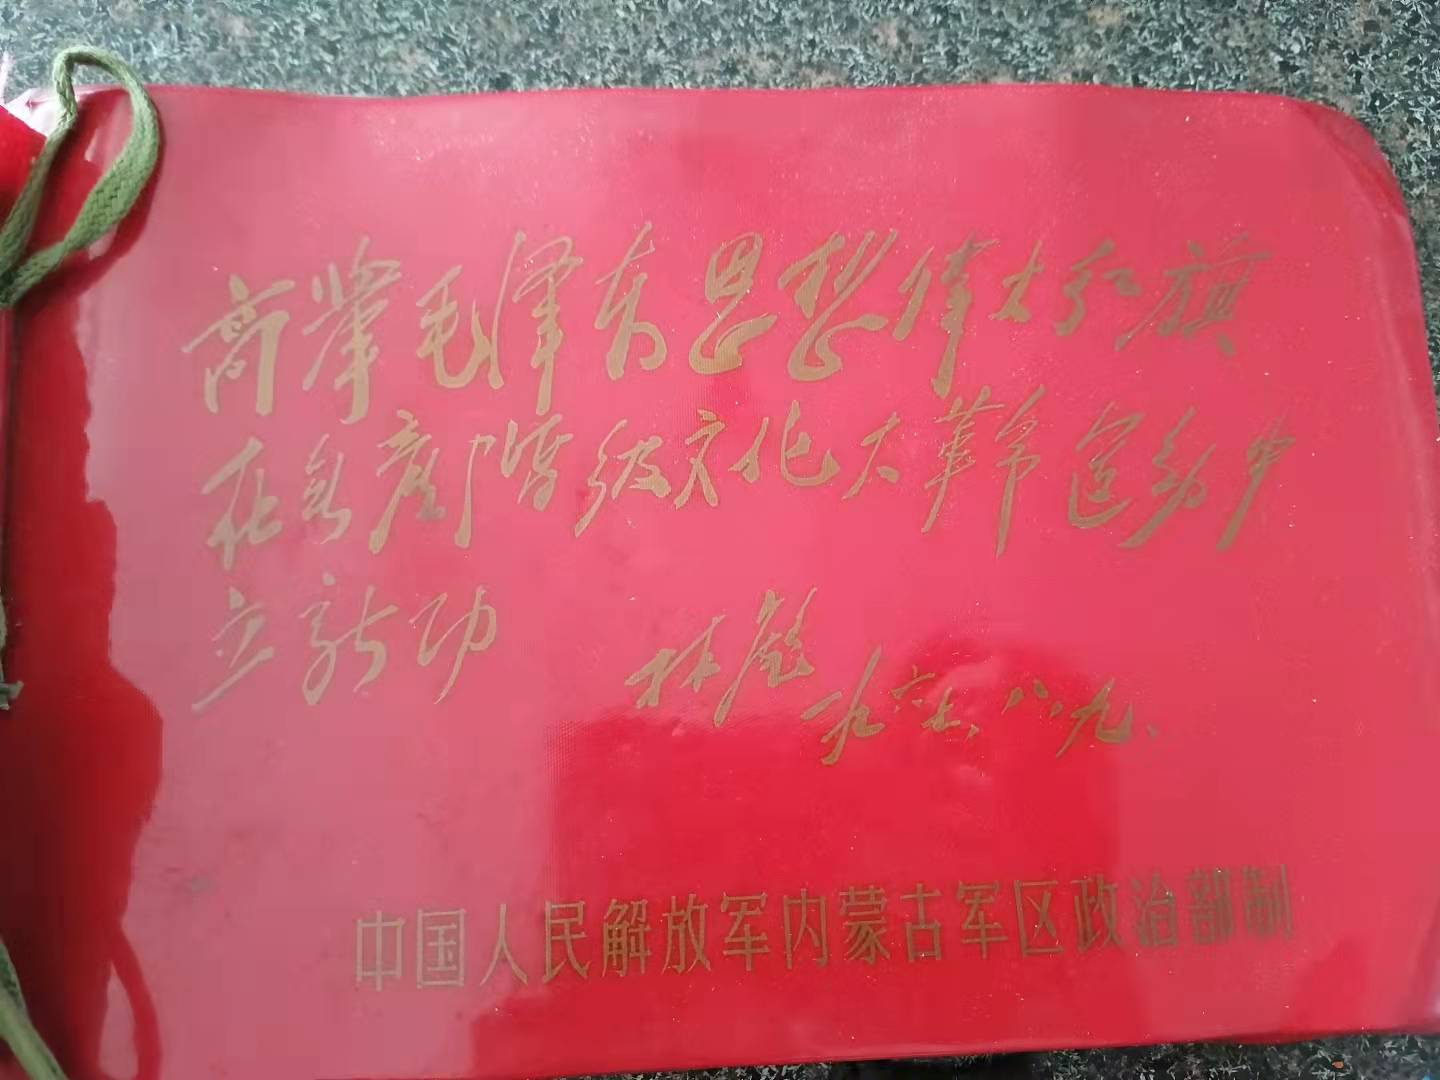 高举毛泽东思想伟大红旗
在无产阶级文化大革命运动中
立新功 林彪
一九六七、八、九、
中国人民解放军内蒙古军区政治部制